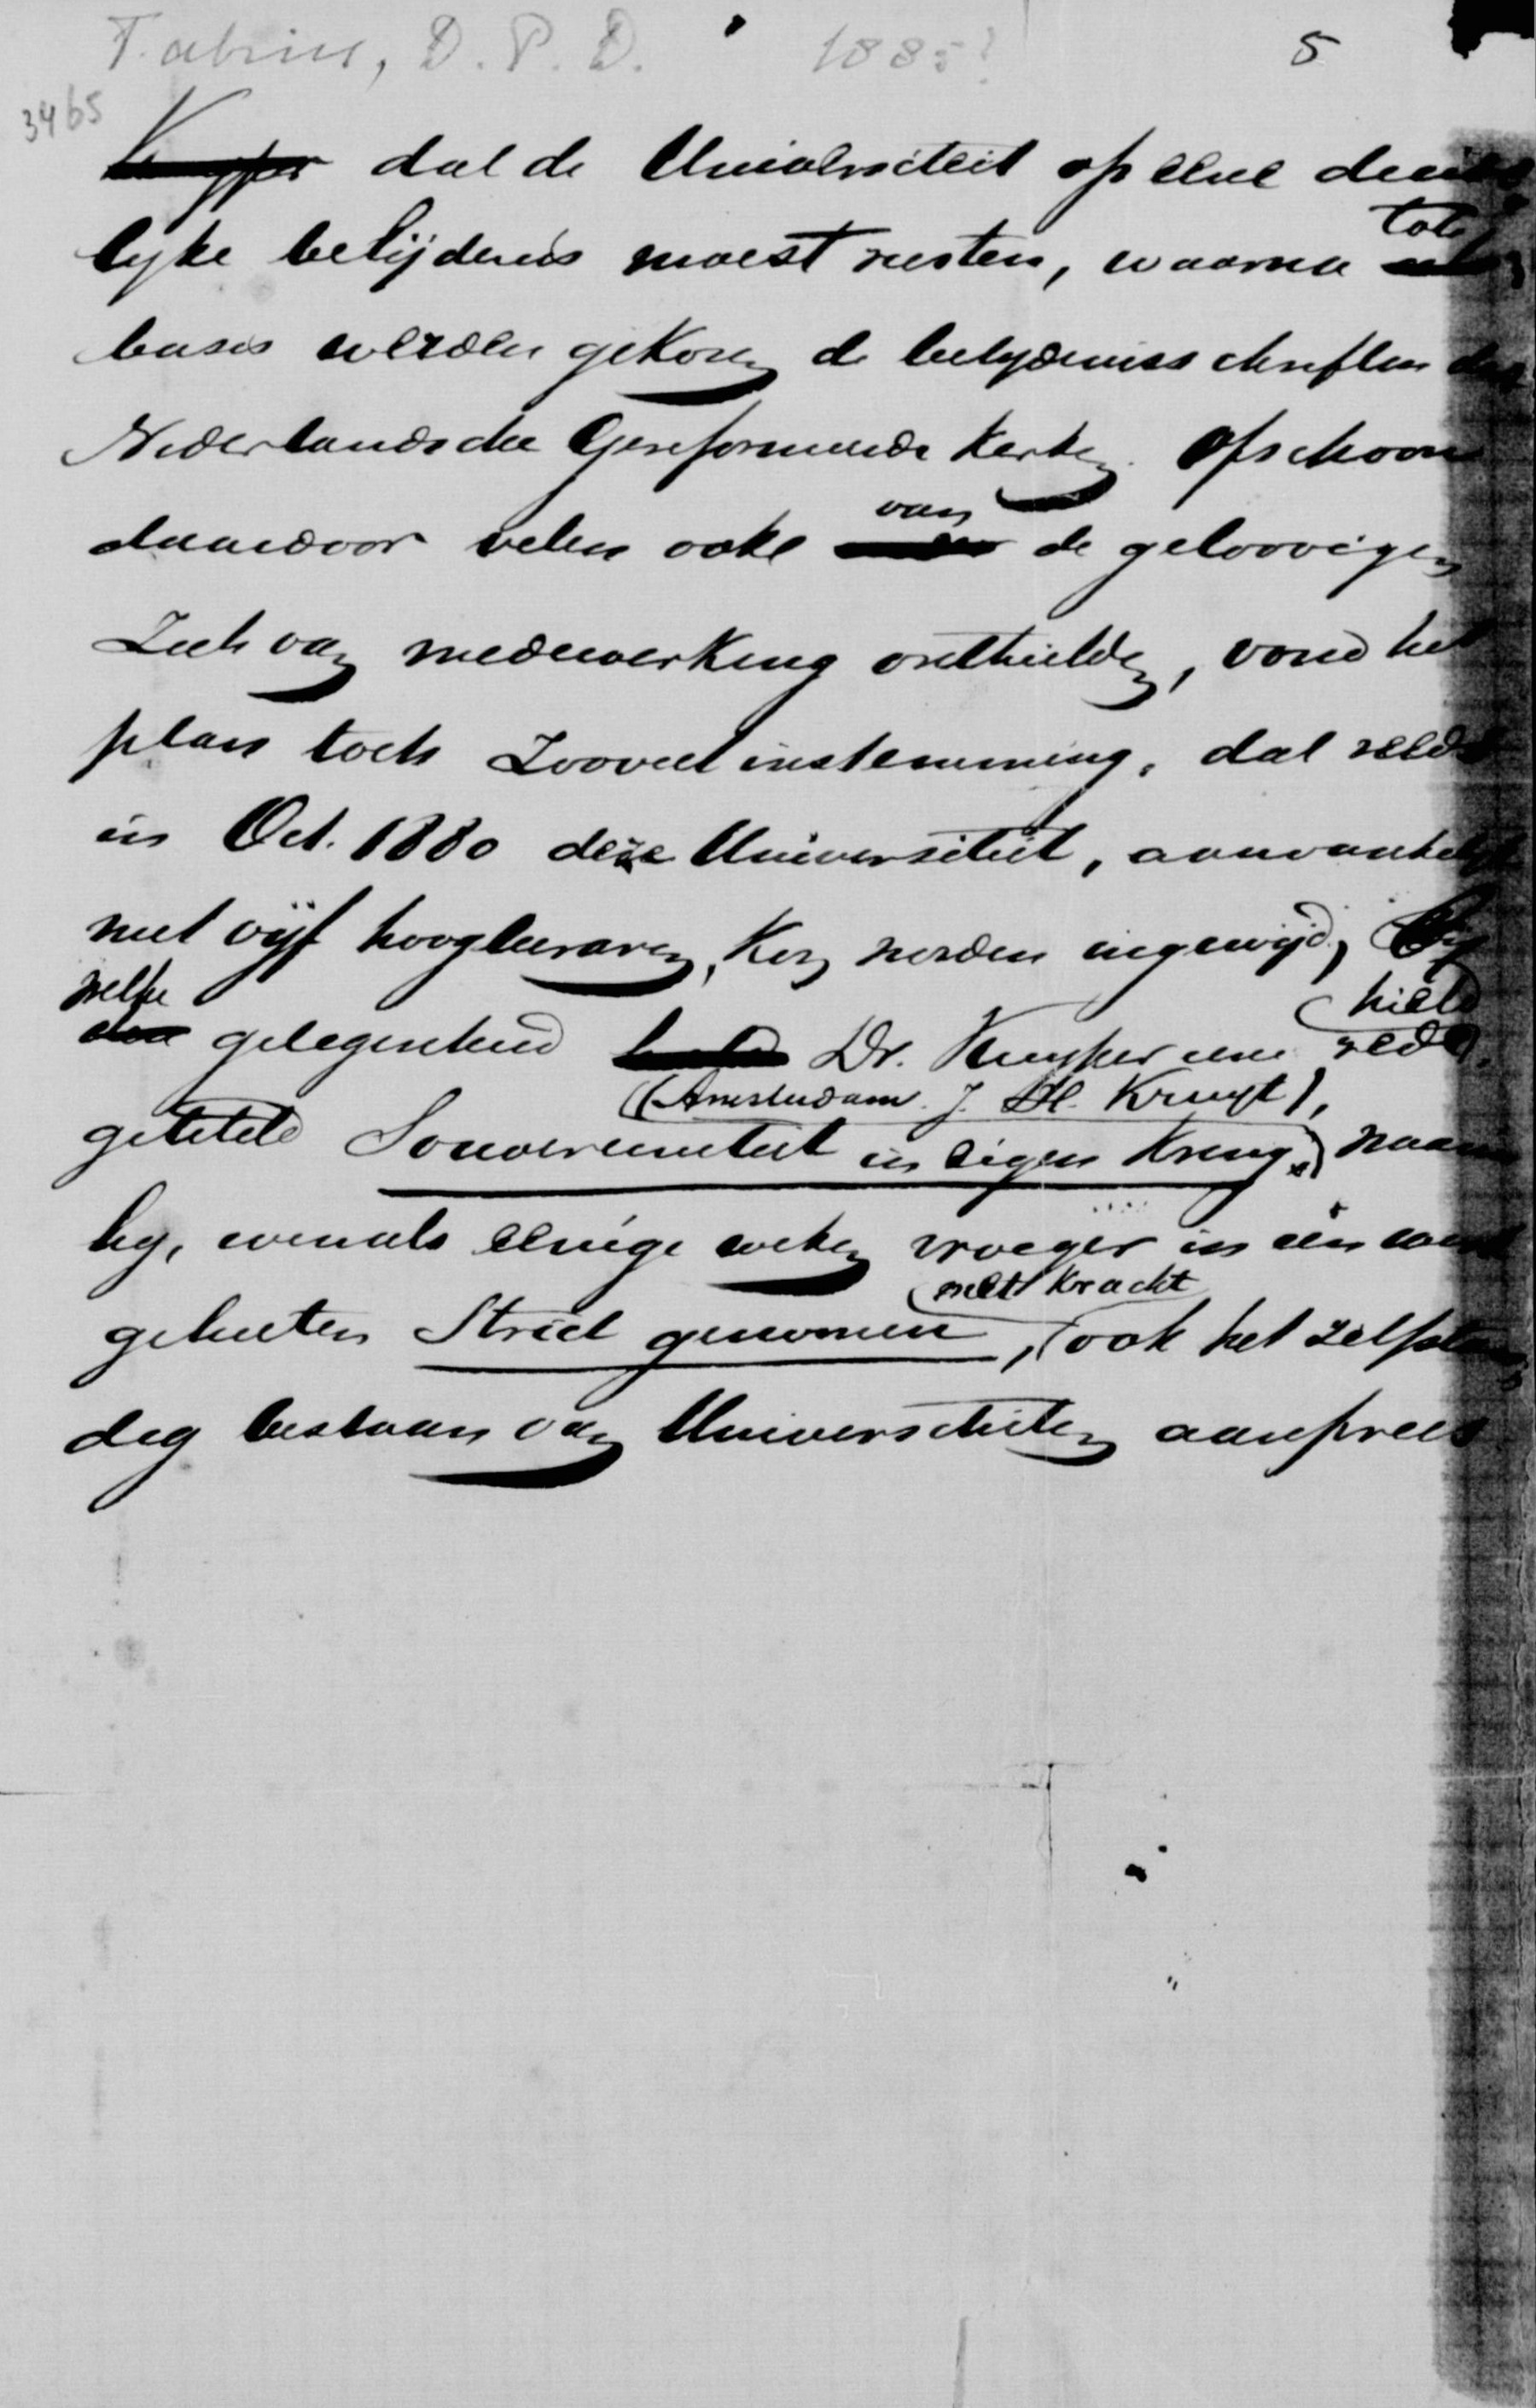 Fabius, D. P. D. 1885?
5
3465
Kuyper dat de Universiteit op eene duide
lyke belijdenis moest rusten, waarna tot
basis werden gekozen de belydenisschriften der
Nederlandsche Gereformeerde Kerken. Ofschoon
daardoor velen ook van de geloovigen
zich van medewerking onthielden, vond het
plan toch zooveel instemming, dat reeds
in Oct. 1880 deze Universiteit, aanvankelyk
met vijf hoogleeraren, kon worden ingewijd, By
welke gelegenheid Dr. Kuyper eene rede hield
(Amsterdam. J. H. Kruyt),
getiteld Souvereiniteit in eigen Kring, waarin
hy, evenals eenige weken vroeger in een werk
met kracht
geheeten Strict genomen, ook het zelfstan
dig bestaan van Universiteiten aanprees